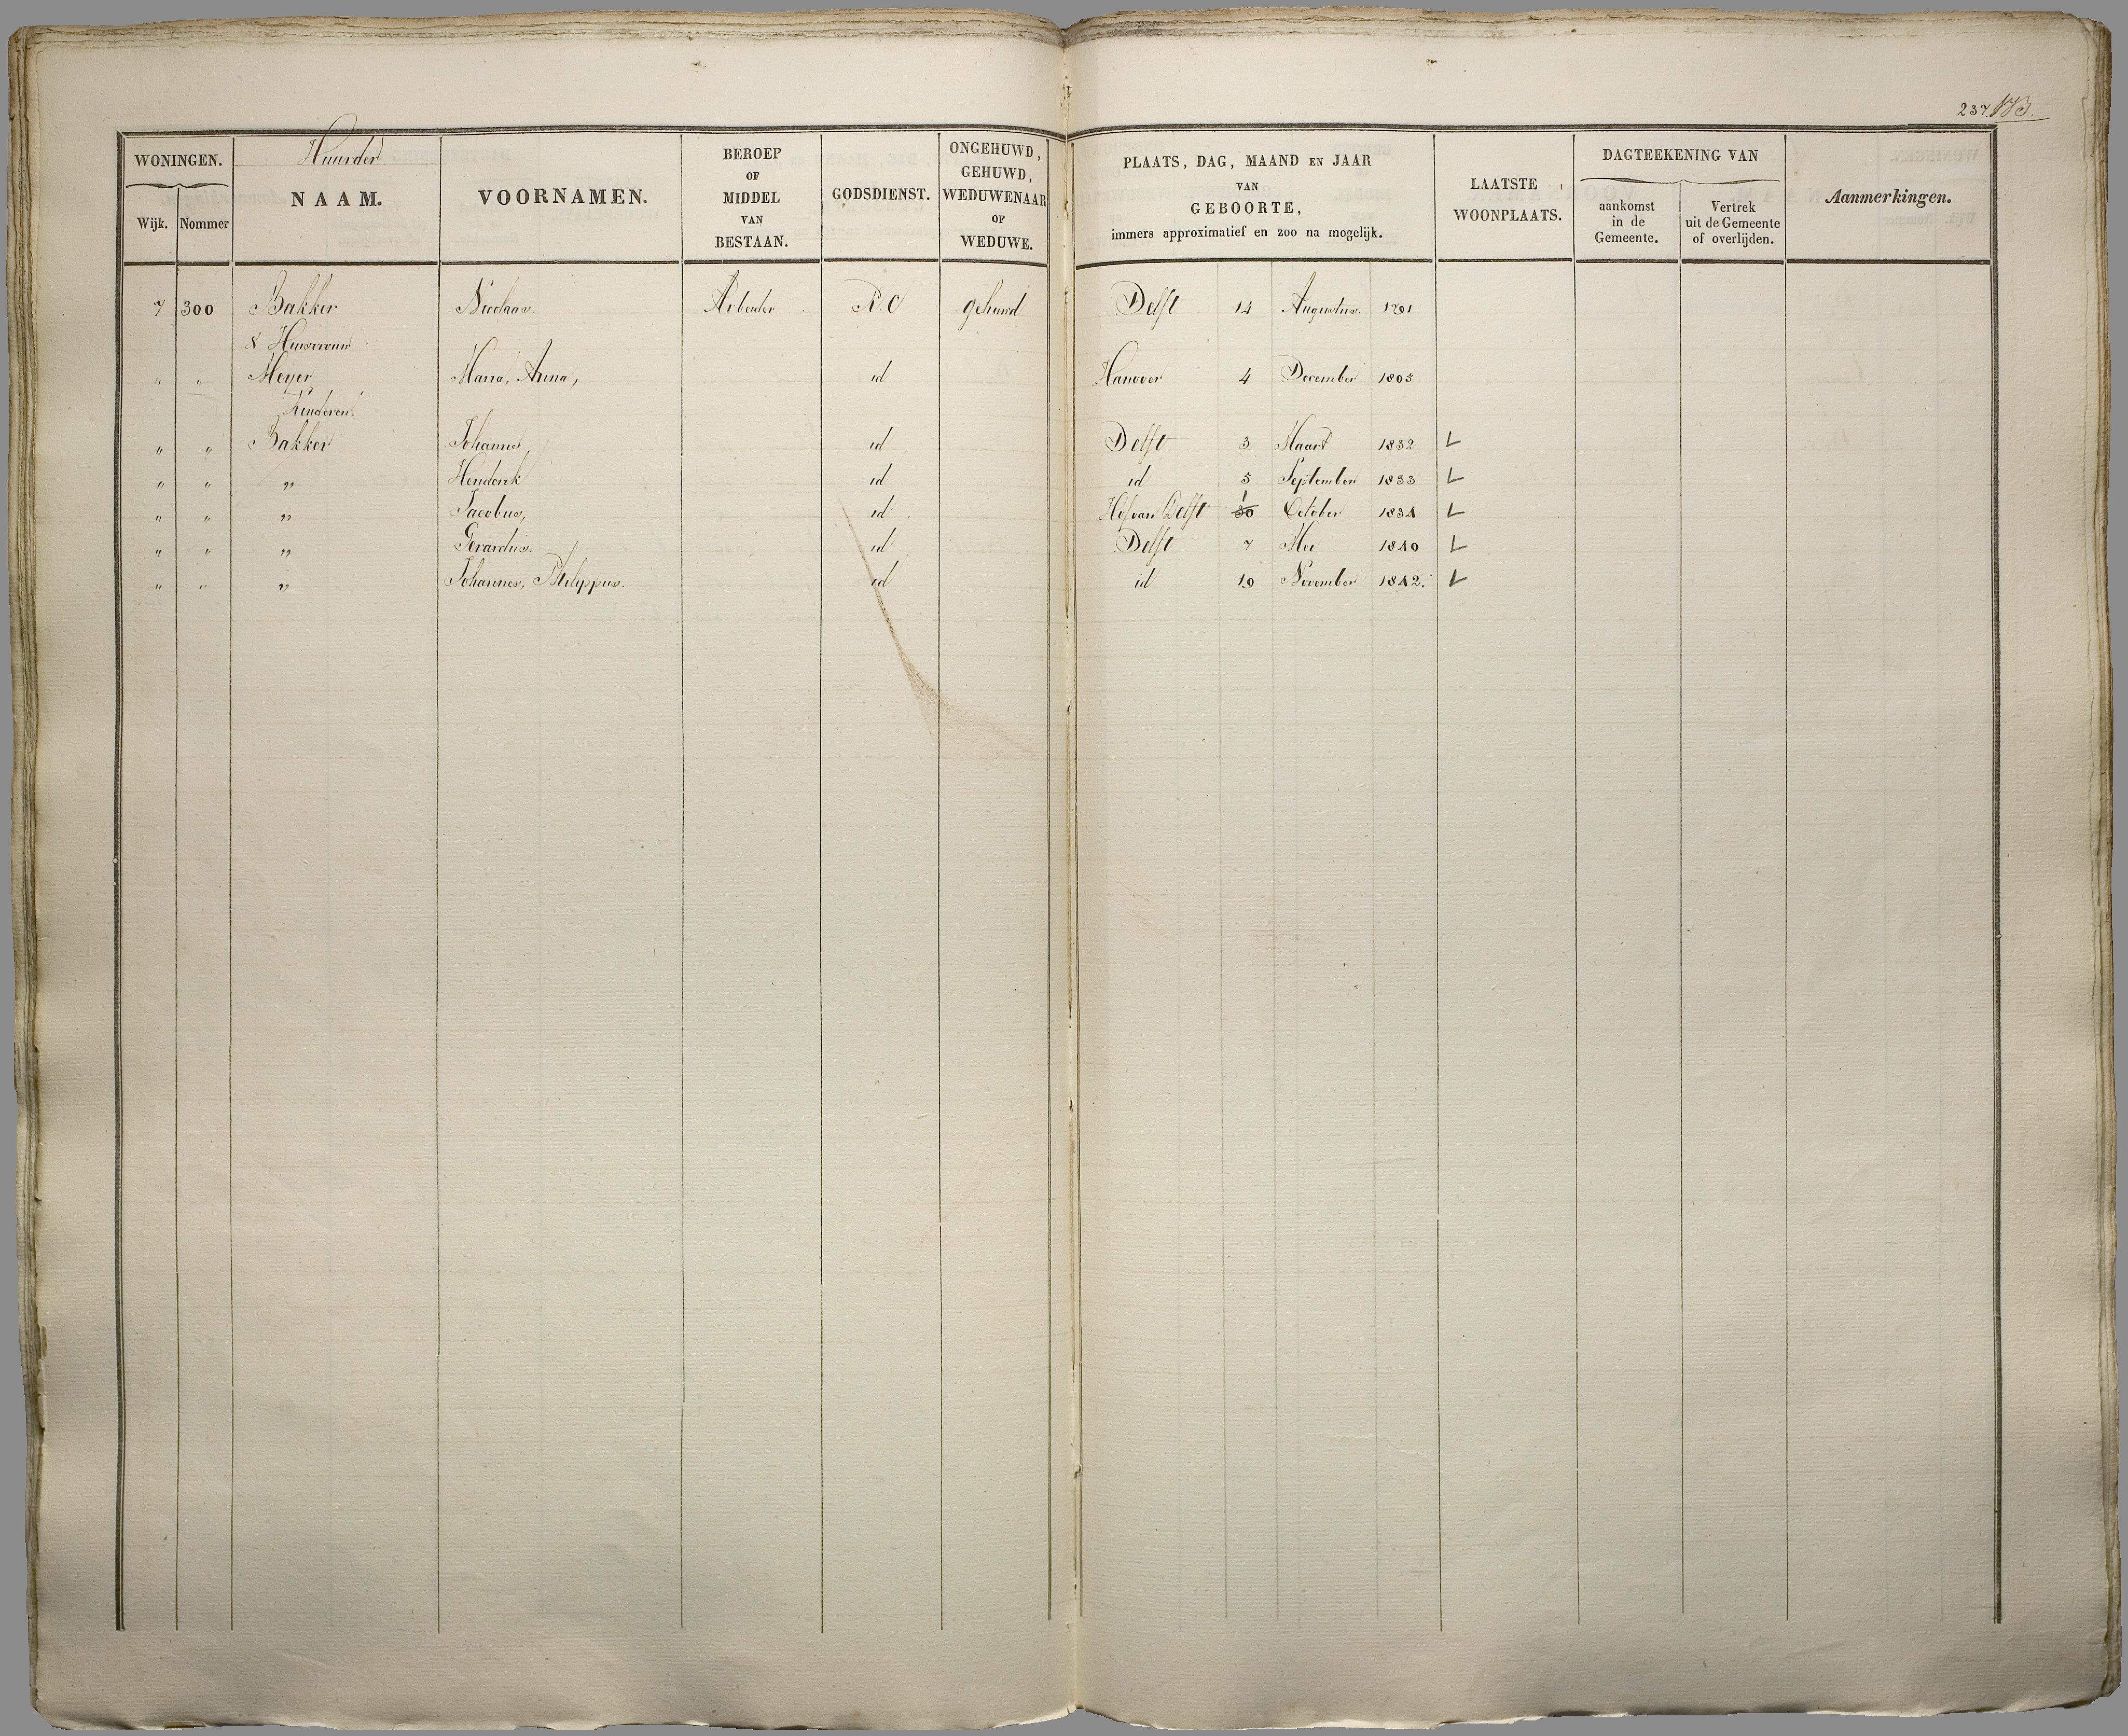 237. 173.
WONINGEN.
Wijk. Nommer
Huurder
NAAM.
VOORNAMEN.
BEROEP
OF
MIDDEL
VAN
BESTAAN.
GODSDIENST.
ONGEHUWD,
GEHUWD,
WEDUWENAAR
OF
WEDUWE.
PLAATS, DAG, MAAND EN JAAR
VAN
GEBOORTE,
immers approximatief en zoo na mogelijk.
LAATSTE
WOONPLAATS.
DAGTEEKENING VAN
aankomst
in de
Gemeente.
Vertrek
uit de Gemeente
of overlijden.
Aanmerkingen.
7 300 Bakker Nicolaas. Arbeider R. C gehuwd Delft 14 Augustus. 1791
& Huisvrouw
" " Meyer Maria, Anna, id Hanover 4 December 1803
Kinderen.
" " Bakker Johannes, id Delft 3 Maart 1832
" " " Henderik id id 5 September 1833
" " " Jacobus, id Hof van Delft 30 1 October 1834
" " " Gerardus. id Delft 7 Mei 1840
" " " Johannes, Philippus. id id 19 November 1842.